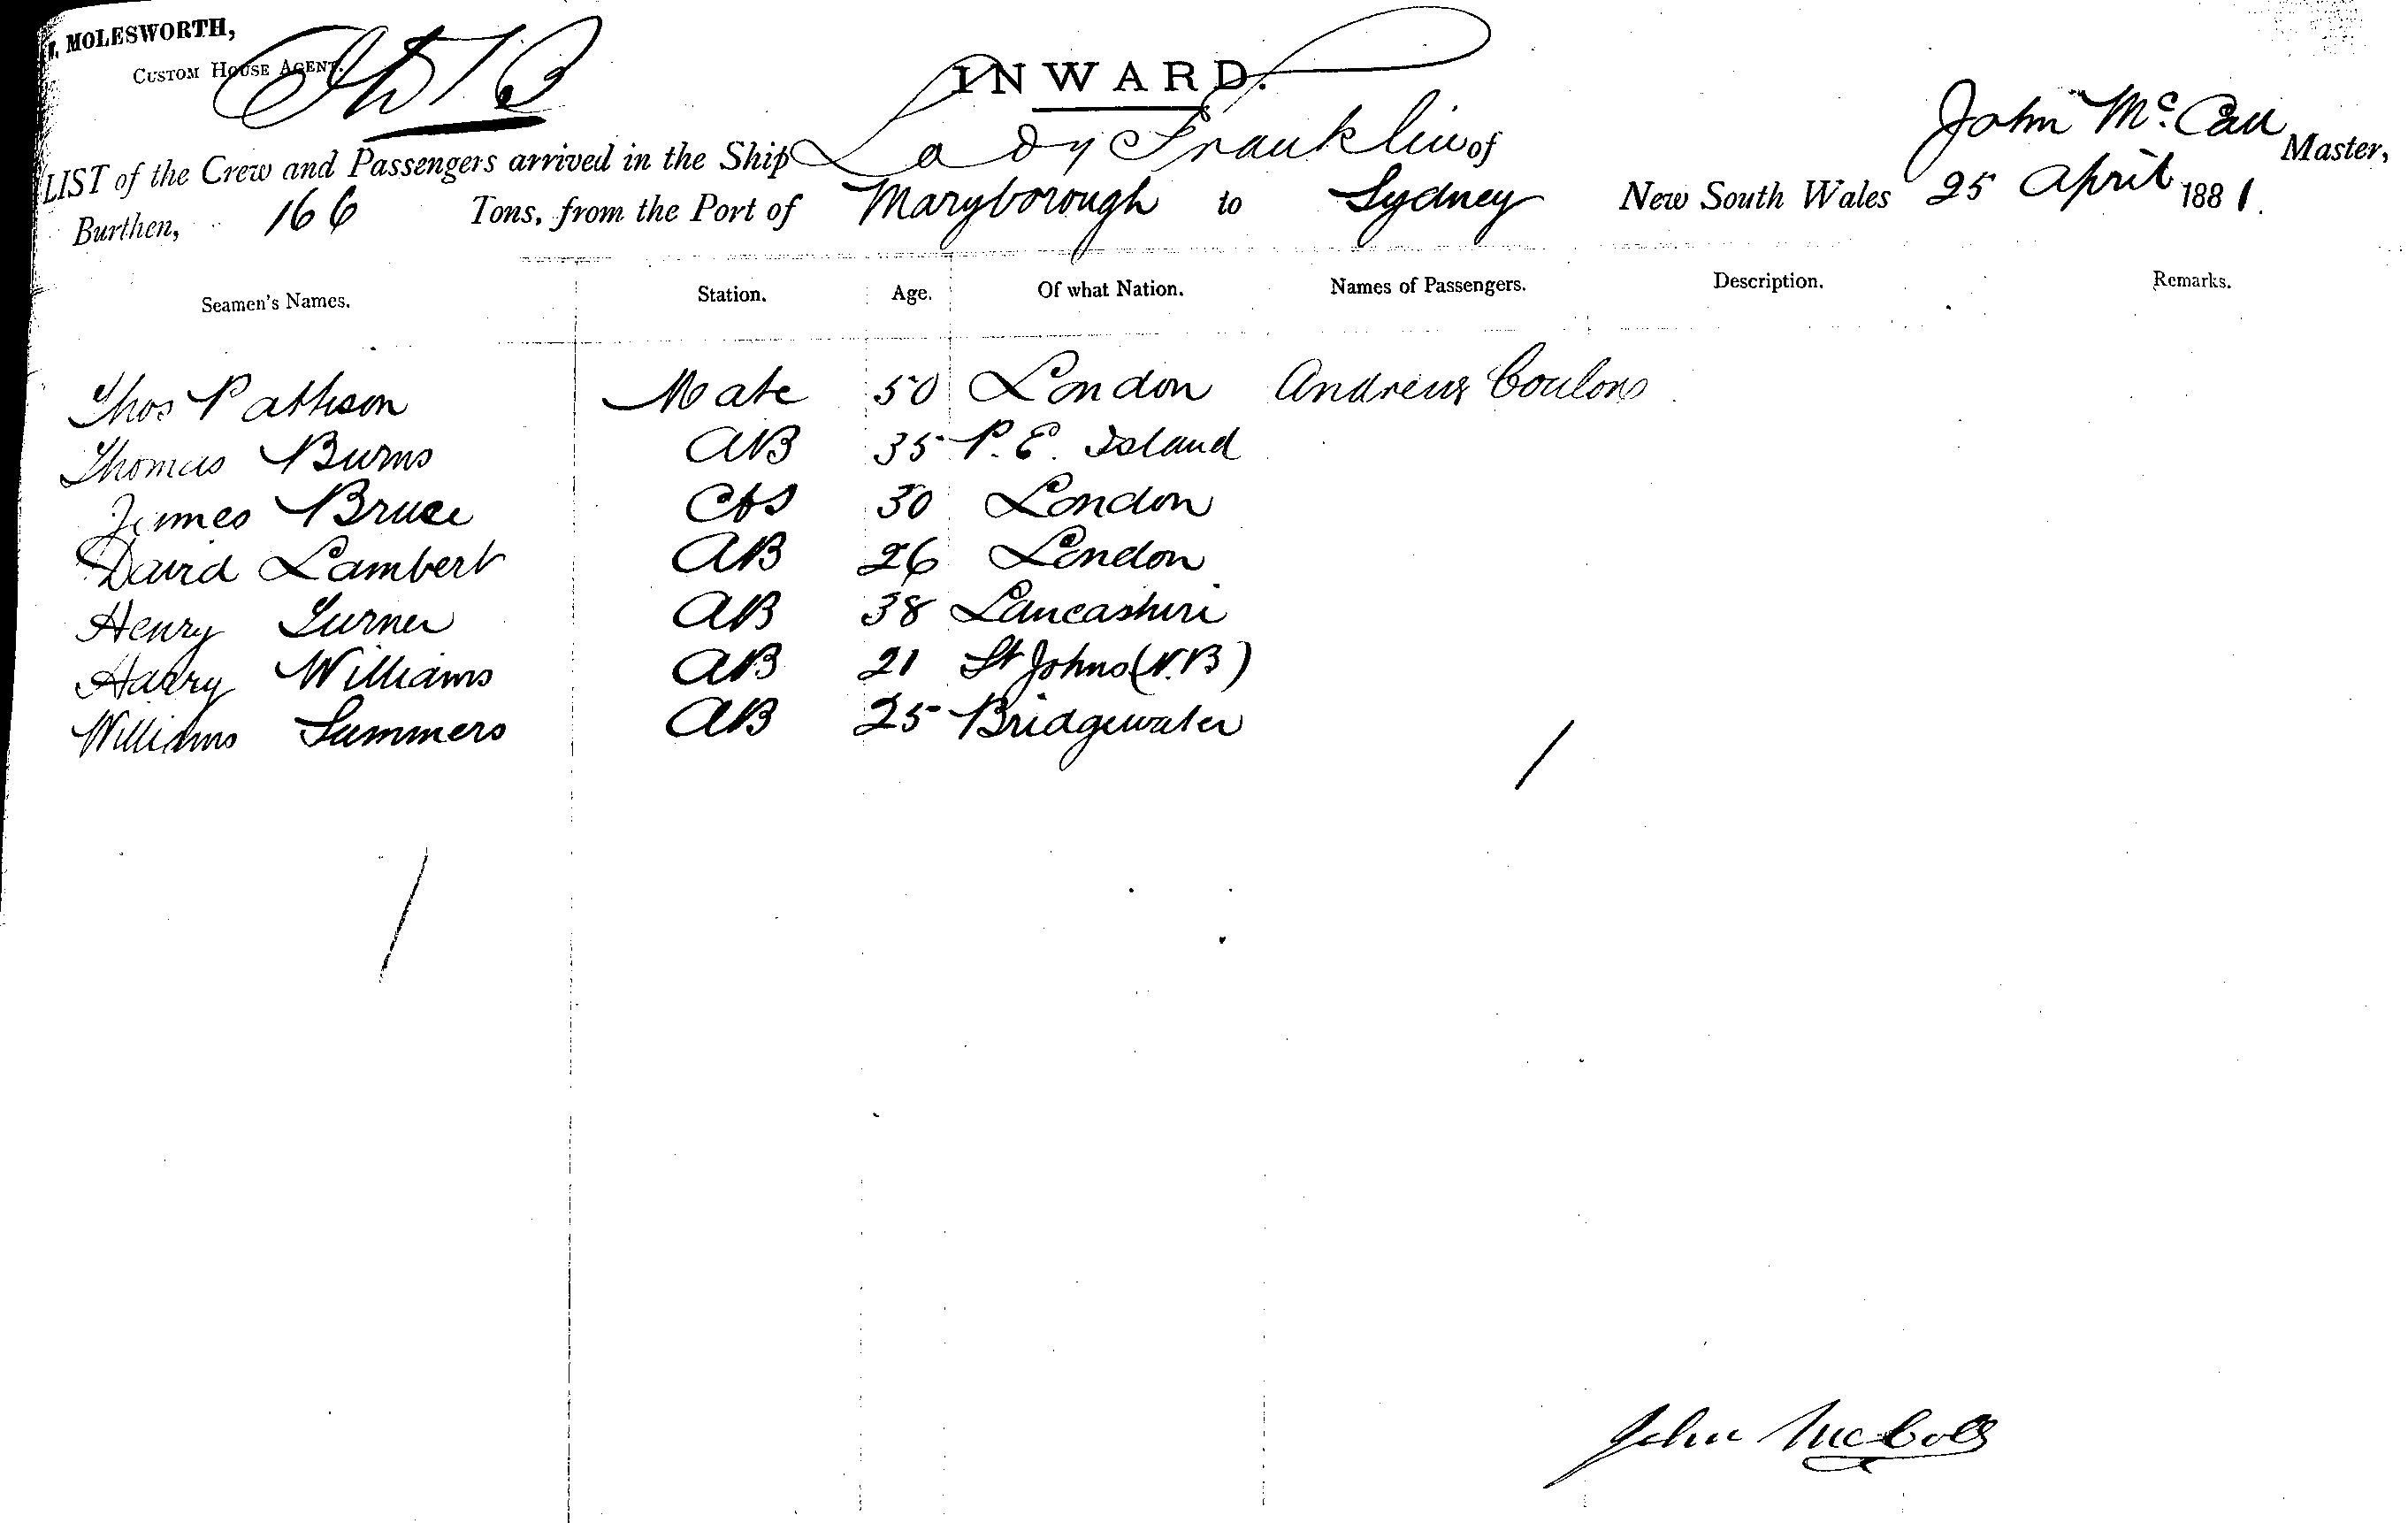 MOLESWORTH,
CUSTOM HOUSE AGENT.
INWARD.
LIST of the Crew and Passengers arrived in the Ship Lady Franklin of John McCall Master,
Burthen, 166 Tons, from the Port of Maryborough to Sydney New South Wales 25 April 1881.
Seamen's Names. Station. Age. Of what Nation. Names of Passengers. Description. Remarks.
Thos Pattison Mate 50 London Andrew Coulons
Thomas Burns AB 35 P. E. Island
James Bruce 30 London
David Lambert AB 26 London
Henry Turner AB 38 Lancashire
Harry Williams AB 21 St Johns (N.B)
Williams Summers AB 25 Bridgewater
John McColl